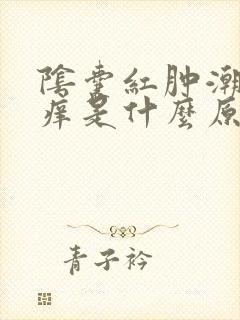 陰囊紅肿潮
痒是什麼原
青子衿